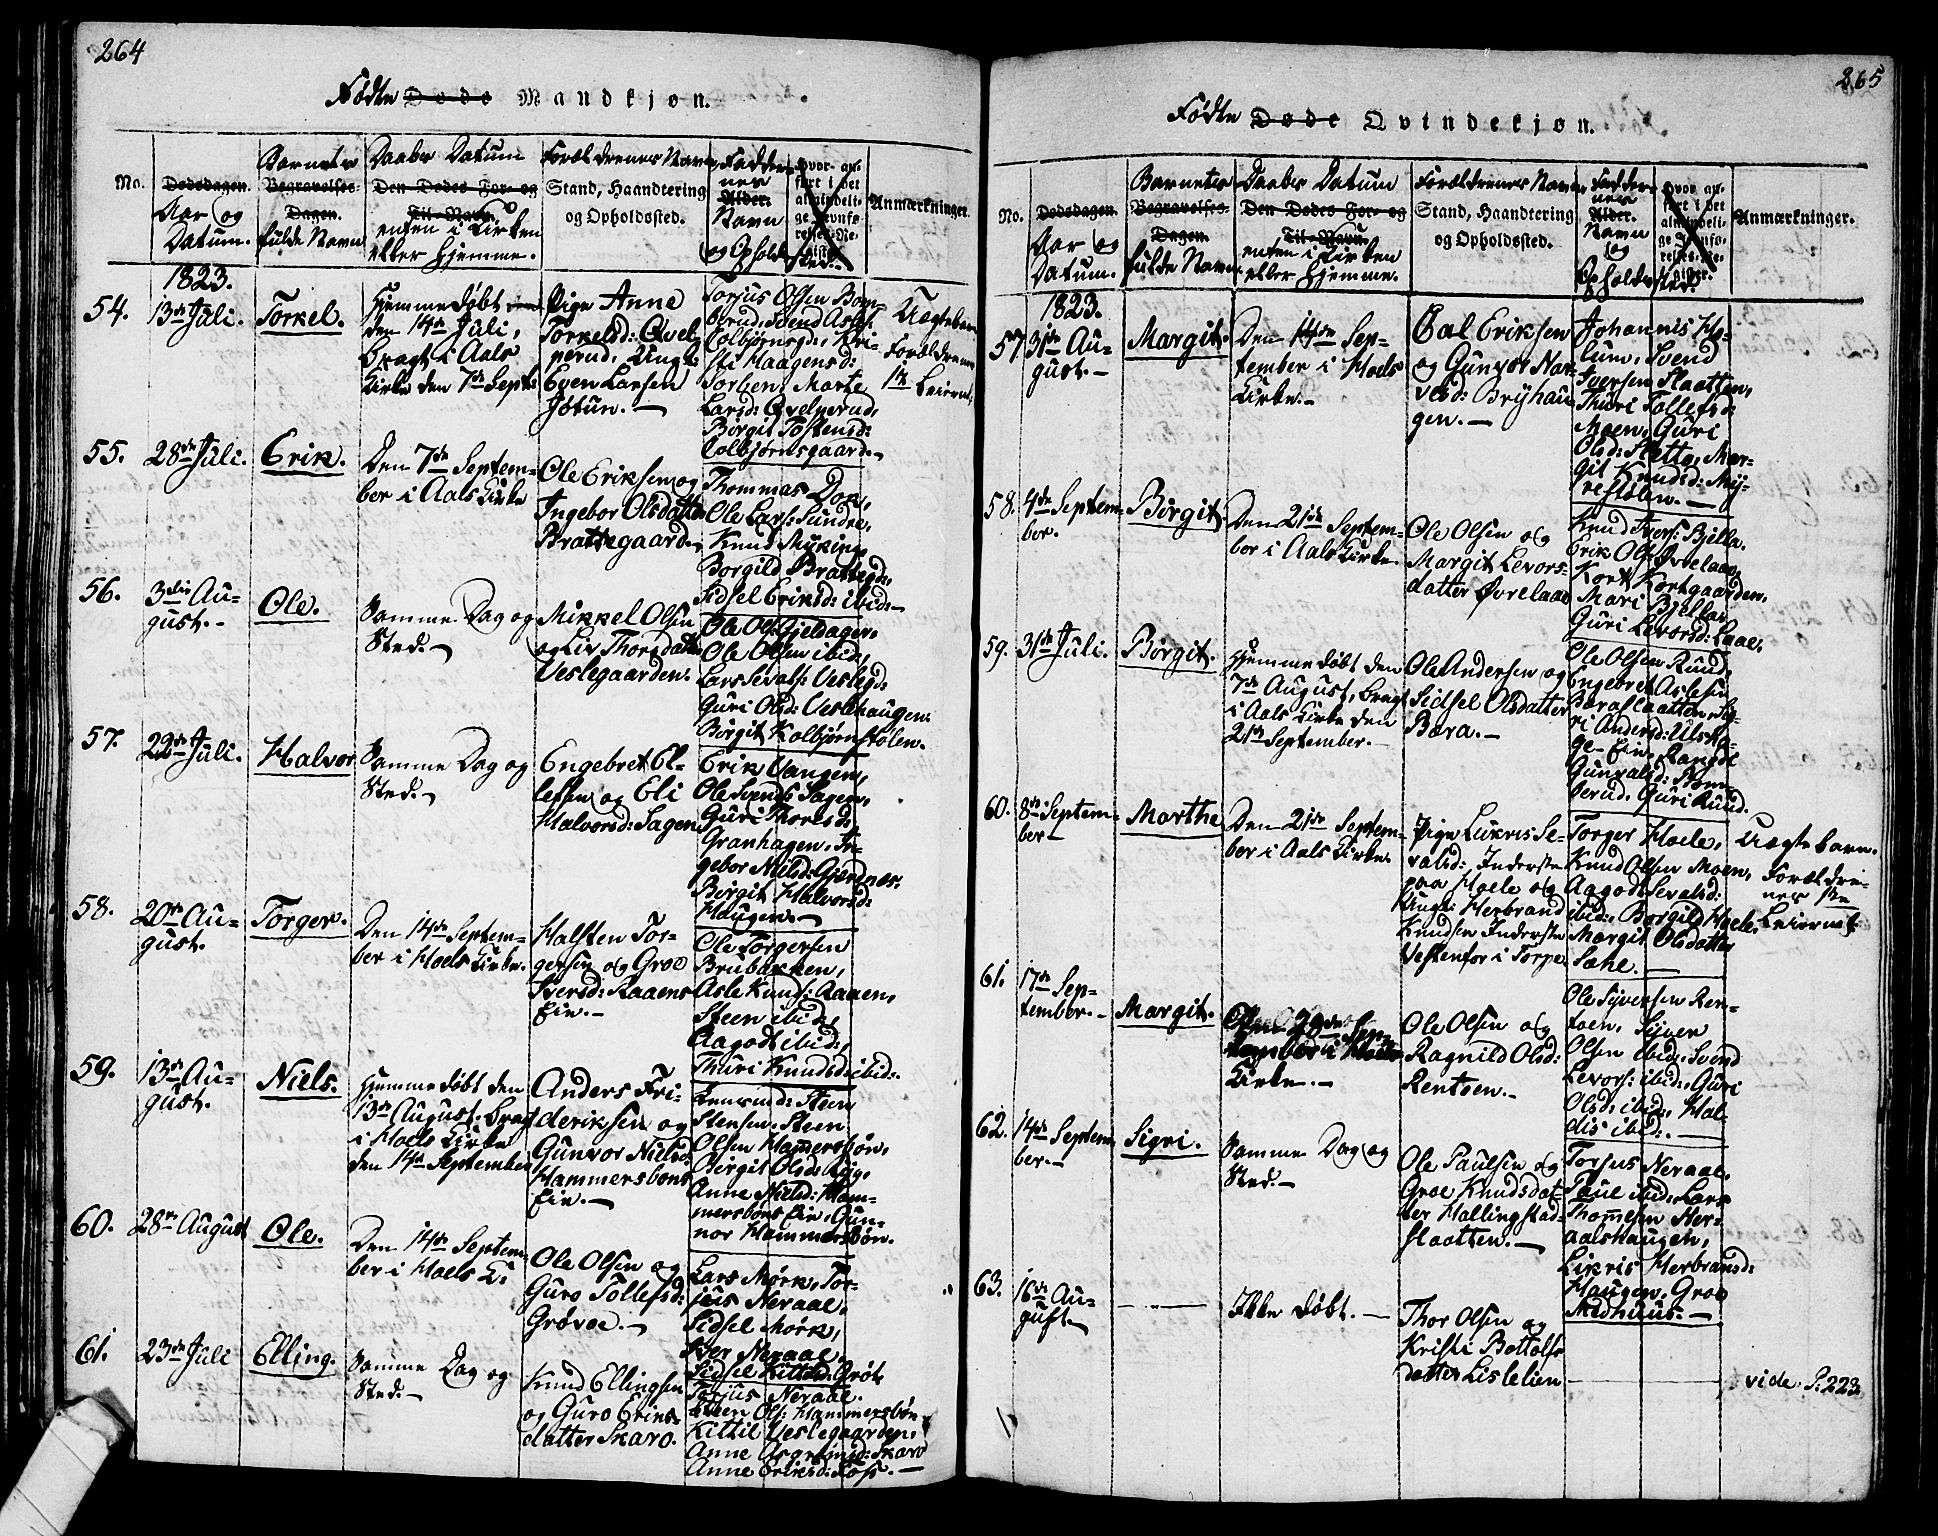 264
Fødte Døde Mandkjøn.
No.
Dødsdagen.
Aar og
Datum.
Barnets
Begravelses-
Dagen.
fulde Navn
Daabs Datum
Den Dødes For- og
Til-Navn.
enten i Kirken
eller Hjemme.
Forældrenes Navn
Stand, Haandtering
og Opholdssted.
Fadder-
nes
Alder.
Navn
og Opholdssted.
Hvor an-
ført i det
almindeli-
ge Jevnfø-
relses-Re-
gister.
Anmærkninger.
1823.
54.
13de Juli.
Torkel.
Hjemmedøbt
den 14de Juli,
bragt i Aals
Kirke den 7de Sept:
Pige Anne
Torkelsd: Qvel-
perud, Ungk:
Even Larsen
Jøtun.
Torjus Olsen
Haagensd:
Torben, Marte
Larsd: Qvelperud,
Birgit Tostensd:
Colbjørnsgaard.
Uægte barn
Forældrenes
1te Leierm:
55.
28de Juli.
Erik.
Den 7de Septem-
ber i Aals Kirke
Ole Eriksen og
Ingebor Olsdatter
Brattegaard.
Thommas Dok,
Ole Lars: Sundre,
Knud Myking,
Borgild Brattegd:,
Sidsel Eriksd: ibid:
56.
3die Au-
gust.
Ole.
Samme Dag og
Sted.
Mikkel Olsen
og Liv Thorsdatter
Veslegaarden.
Ole Ols: Gjeldager,
Ole Olsen ibid:,
Lars Sevals: Veslegd:
Guri Olsd: Veslehaugen.
Birgit Kolbjørnstølen.
57.
22de Juli.
Halvor
Samme Dag og
Sted.
Engebret El-
lefsen og Eli
Halvorsd: Sagen
Erik Vangen,
Ole Svends: Sagen,
Guri Thoresd:
Granhagen, In-
gebor Nielsd: Gjerdnes.
Birgit Halvorsd:
Haugen.
58.
20de Au-
gust.
Torger.
Den 14de Septem-
ber i Hoels Kirke.
Halsten Tor-
gersen og Groe
Iversd: Raaens
Eie.
Ole Torgersen
Brubakken,
Asle Knuds: Raaen,
Steen ibid:,
Aagodt ibid:,
Thuri Knudsd: ibid:
59.
13de Au-
gust.
Niels.
Hjemmedøbt den
13de August. bragt
i Hoels Kirke
den 14de September
Anders Fri-
deriksen og
Gunvor Nielsd:
Hammersbøns
Eie.
Steen
Stensen, Steen
Olsen Hamersbøn,
Bergit Olsd:
Anne Nielsd: Ham-
mersbøns Eie, Gun-
nor Hammersbøn.
60.
28de August
Ole.
Den 14de Septem-
ber i Hoels K:
Ole Olsen og
Guro Tollefsd:
Grøvoe.
Lars Mørk, Tor-
jus Neraal,
Sidsel Mørk,
Iver Neraal,
Sidsel Kittilsd: Grøt
61.
23de Juli
Elling.
Samme Dag og
Sted.
Knud Ellingsen
og Guro Eriks-
datter Skaro.
Torjus Neraal.
Steen Ols: Hammersbøn
Kittil Veslegaarden,
Anne Asgrimsd: Skaro
Anne Eriksd:
265
Fødte Døde Qvindekjøn.
No.
Dødsdagen.
Aar og
Datum.
Barnets
Begravelses-
Dagen.
fulde Navn
Daabs Datum
Den Dødes For- og
Til-Navn.
enten i Kirken
eller Hjemme.
Forældrenes Navn
Stand, Haandtering
og Opholdssted.
Fadder-
nes
Alder.
Navn
og
Opholdssted.
Hvor an-
ført i det
almindeli-
ge Jevnfø-
relses-Re-
gister.
Anmærkninger.
1823.
57
31te Au-
gust.
Margit.
Den 14de Sep-
tember i Hoels
Kirke.
Eriksen
og Gunvor Nar-
vesd: Bryhau-
gen.
Johannis Ho-
lum, Svend
Iversen Slaatten,
Thuri Tollefsd:
Moen, Guri
Olsd: Sletto, Mar-
git Knudsd: My-
restølen.
58.
4de Septem-
ber.
Birgit
Den 21de Septem-
ber i Aals Kirke.
Ole Olsen og
Margit Levors-
datter Øvrelaae
Knud Ivers: Bjella.
Erik Ols: Øvrelaae,
Kort Kortgaarden,
Mari Bjella,
Guri Levorsd: Laae,
59.
31te Juli.
Birgit.
Hjemmedøbt den
7de August, bragt
i Aals Kirke den
21de September.
Ole Andersen og
Sidsel Olsdatter
Bæra.
Ole Olsen Ruud,
Engebret Aslesen
Bæraslaatten, Sig-
ri Andersd: Ulsha-
ge Eie, Rangdi
Gunvalsd: Bom-
berud, Guri Ruud.
60.
8de Septem-
ber
Marthe
Den 21de Septem-
ber i Aals Kirke
Pige Lukris Se-
valsd: Inderste
paa Hoele og
Ungk: Herbrand
Knudsen Inderste
Vestenfor i Torpe
Torger Hoele,
Knud Olsen Moen,
Aagodt Sevalsd:
ibid:, Borgild Hoele,
Margit Olsdatter
Sæhe.
Uægte barn.
Forældre-
nes 1te
Leiermt:
61.
17de Sep-
tember.
Margit.
Den 28de Sep-
tember i Hoels
Kirke.
Ole Olsen og
Ragnild Olsd:
Rentoen.
Ole Syversen Ren-
toen, Syver
Olsen ibid:, Svend
Levors: ibid:, Guri
Olsd: ibid:, Hal-
dis ibid:.
62.
14de Septem-
ber.
Sigri.
Samme Dag og
Sted.
Ole Paulsen og
Groe Knudsdat-
ter Hallingstad-
slaatten.
Torjus Neraal,
Poul ibid:, Lars
Thomesen Ner-
aalshaugen,
Likris Herbransd:
Haugen, Groe
Medhuus.
63.
16de Au-
gust.
Ikke Døbt.
Thor Olsen og
Kristi Bottolfs
datter Lislelien
vide. P: 223